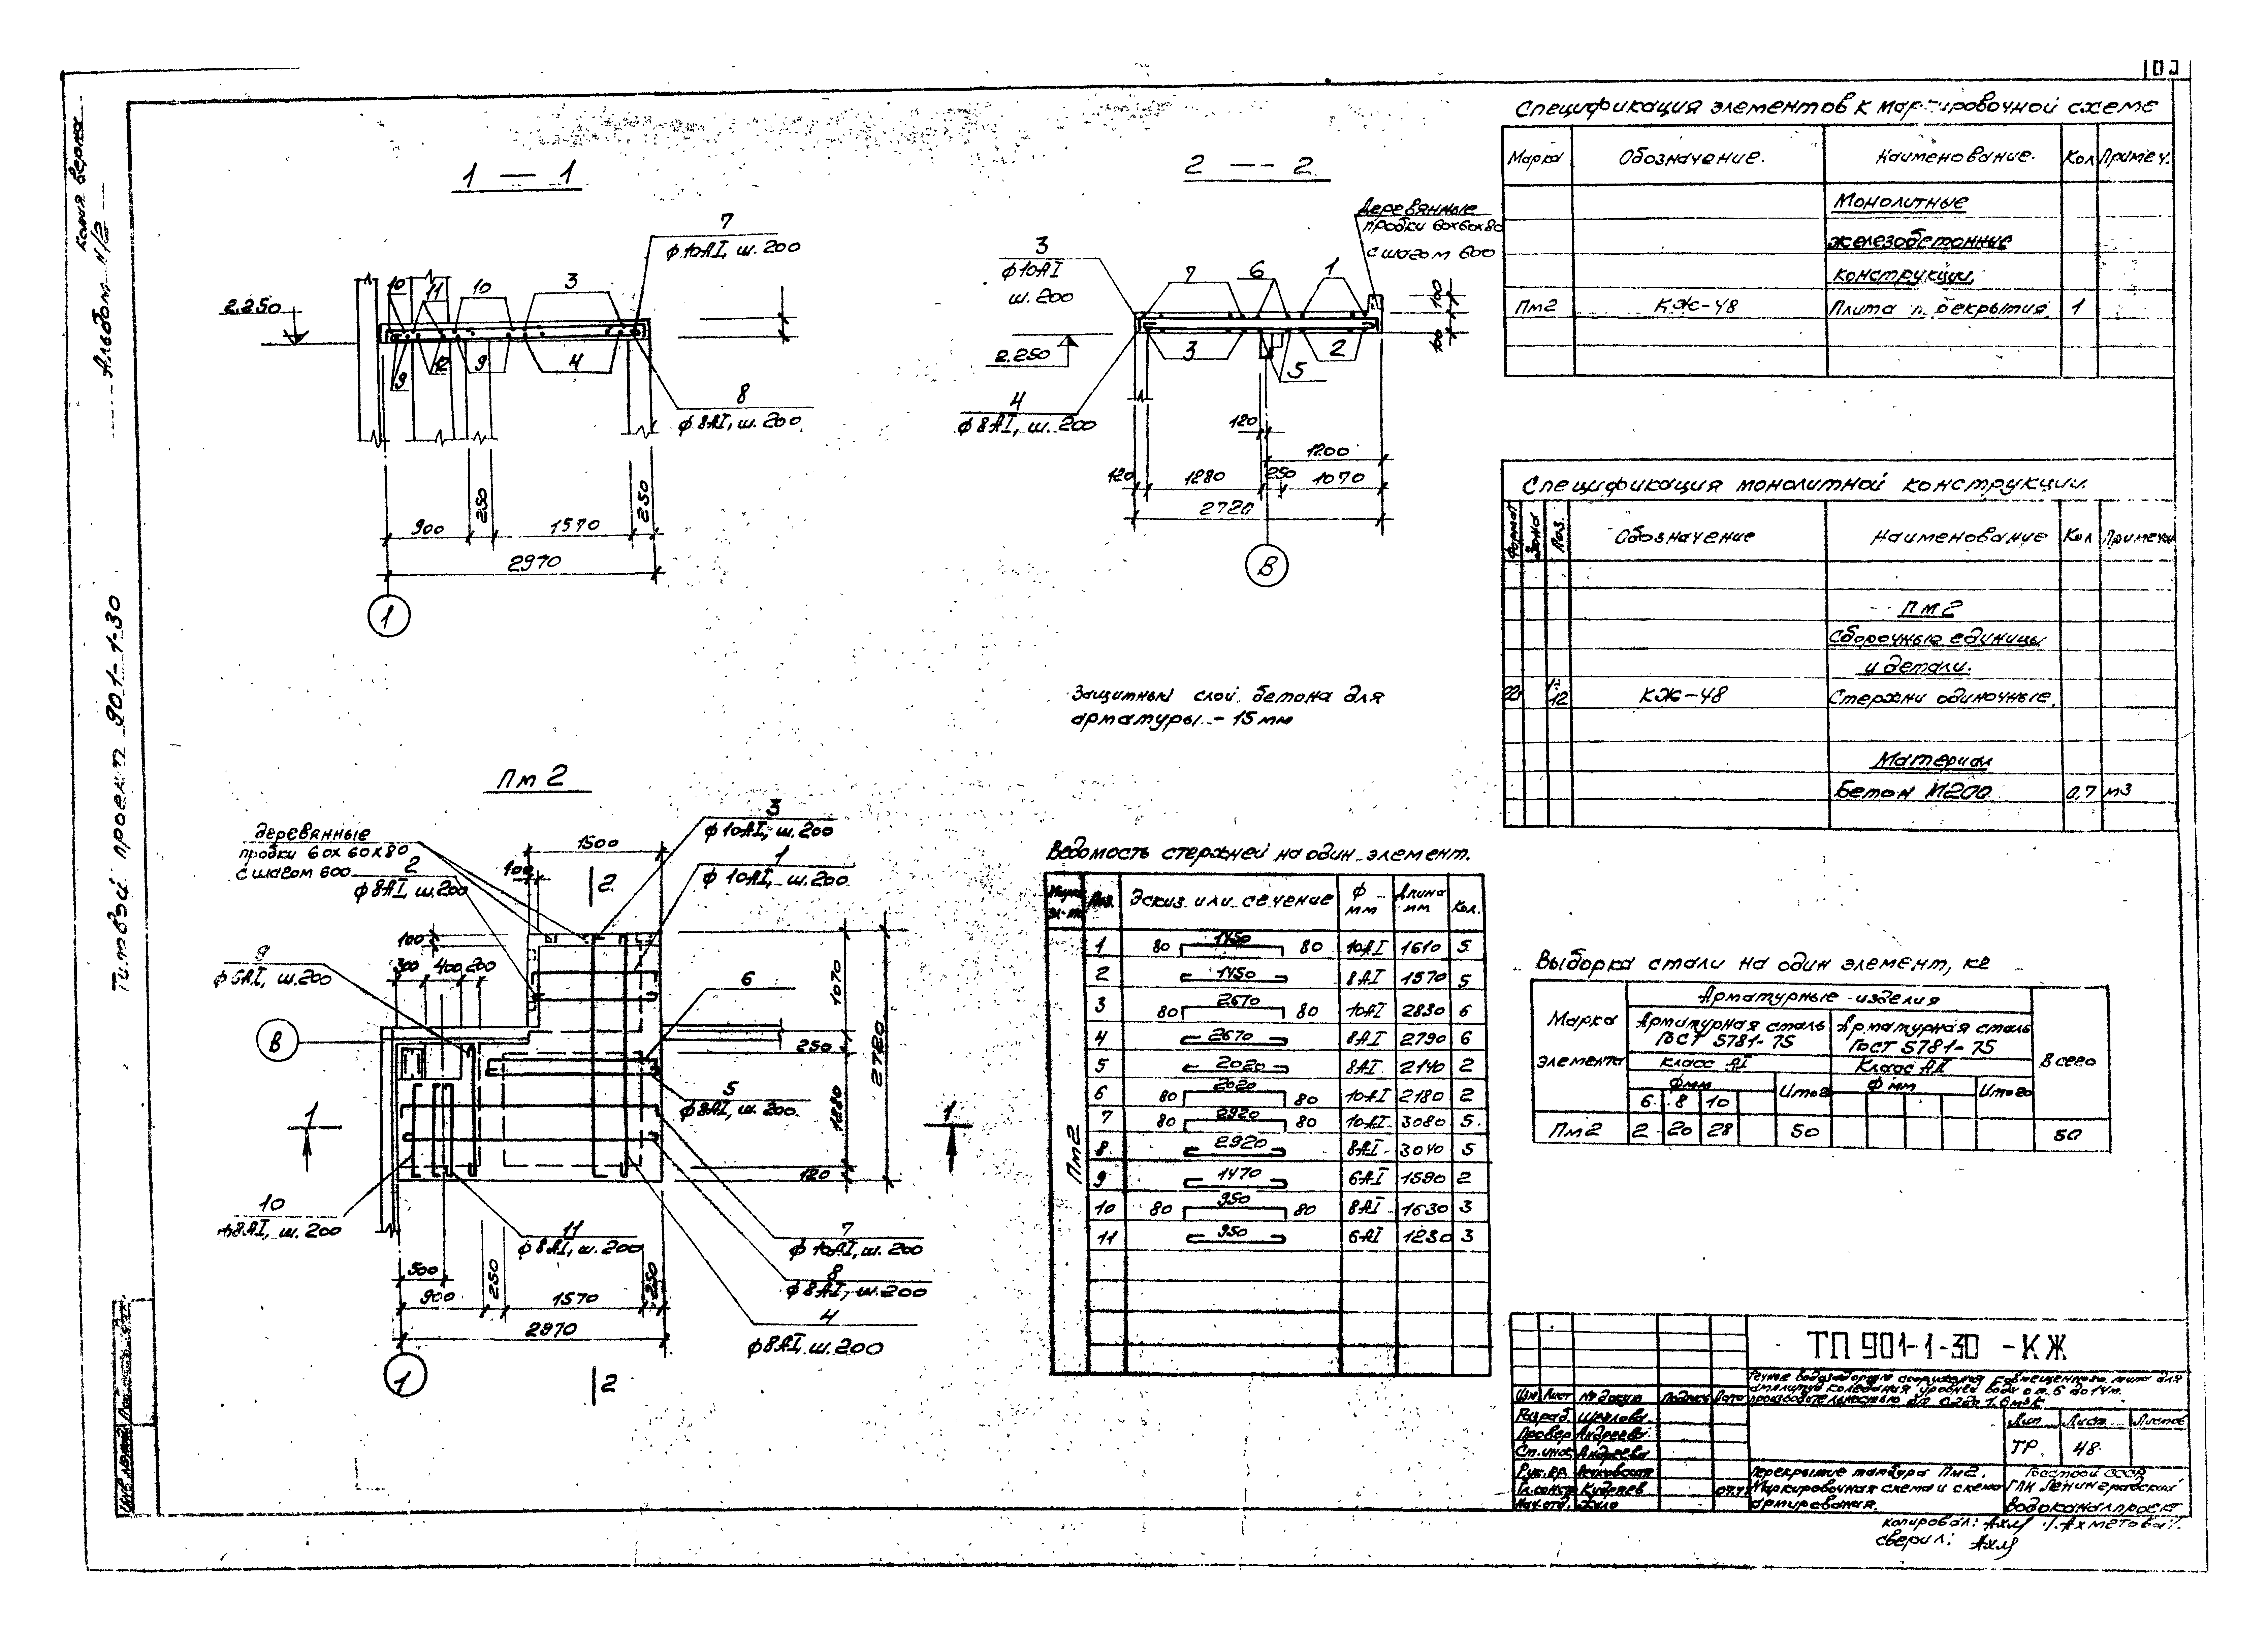 Копия верна
Альбом II/2
Типовой проект 901-1-30
1 — 1
7
ф10АI, ш. 200
10
11
10
3
2.250
9
12
9
4
8
ф8АI, ш. 200
900
250
1570
250
2970
1
2 — 2
Деревянные
пробки 60х60х80
с шагом 600
3
ф10АI
ш. 200
7
6
1
100
100
2.250
3
5
2
4
ф8АI, ш. 200
120
1200
120
1280
250
1070
2720
В
Защитный слой бетона для
арматуры - 15 мм
Пм 2
деревянные
пробки 60х60х80
с шагом 600
2
ф8АI, ш. 200
3
ф10АI, ш. 200
1
ф10АI, ш. 200
1500
100
2
100
300
400
200
9
ф6АI, ш. 200
6
1070
250
2720
В
5
ф8АI, ш. 200
1280
1
1
120
10
ф8АI, ш. 200
11
ф8АI, ш. 200
7
ф10АI, ш. 200
8
ф8АI, ш. 200
4
ф8АI, ш. 200
500
900
250
1570
250
2970
1
2
Спецификация элементов к маркировочной схеме
Марка Обозначение. Наименование. Кол Примеч.
Монолитные
железобетонные
конструкции.
Пм2 КЖ-48 Плита перекрытия 1
Спецификация монолитной конструкции.
Формат Зона Поз. Обозначение Наименование Кол Примечан
Пм2
Сборочные единицы
и детали.
22г 1÷12 КЖ-48 Стержни одиночные.
Материал
Бетон М200 0,7 м3
Ведомость стержней на один элемент.
Поз. Эскиз или сечение Ф мм Длина мм Кол.
Пм2
1 80 1450 80 10АI 1610 5
2 1450 8АI 1570 5
3 80 2670 80 10АI 2830 6
4 2670 8АI 2790 6
5 2020 8АI 2140 2
6 80 2020 80 10АI 2180 2
7 80 2920 80 10АI 3080 5
8 2920 8АI 3040 5
9 1470 6АI 1590 2
10 80 950 80 8АI 1630 3
11 950 6АI 1230 3
Выборка стали на один элемент, кг
Марка элемента
Арматурные изделия
Всего
Арматурная сталь ГОСТ 5781-75
Арматурная сталь ГОСТ 5781-75
Класс АI
Класс АII
Ф мм Итого Ф мм Итого
6 8 10
Пм2 2 20 28 50 50
ТП 901-1-30 -КЖ
Речные водозаборные сооружения совмещенного типа для
амплитуд колебания уровней воды от 6 до 14м.
Изм Лист № докум Подпись Дата
Разраб.
Провер Андреева
Ст.инж. Андреева
Рук.гр.
Гл.констр.
Нач.отд.
Лит Лист Листов
ТР 48
Перекрытие тамбура Пм2.
Маркировочная схема и схема
армирования.
Госстрой СССР
ГПИ Ленинградский
Водоканалпроект
Копировал: Ахм /Ахметова/.
Сверил: Ахм